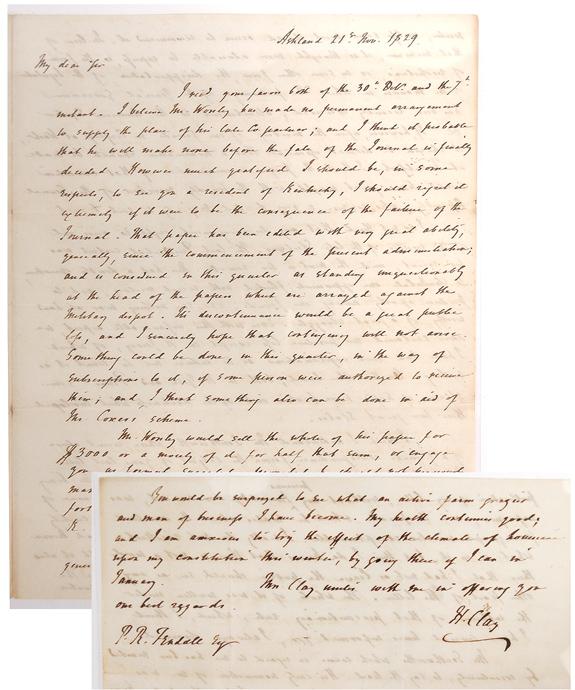 Ashland 21st Nov. 1829
My dear Sir
I recd your favor both of the 30th Ulto. and the 7th
instant. I believe Mr Worsley has made no permanent arrangement
to supply the place of his late Co partner; and I think it probable
that he will make none before the fate of the Journal is finally
decided. However much gratified I should be, in some
respects, to see you a resident of Kentucky, I should regret it
extremely if it were to be the consequence of the failure of the
Journal. That paper has been edited with very great ability,
generally, since the commencement of the present administration;
and is considered in this quarter as standing unquestionably
at the head of the papers which are arrayed against the
Military despot. Its discontinuance would be a great public
loss, and I sincerely hope that contingency will not arise.
Something could be done, in this quarter, in the way of
subscriptions to it, if some person were authorized to receive
them; and I think something also can be done in aid of
Mr Coxes's scheme.
Mr. Worsley would sell the whole of his paper for
$3000 or a moiety of it for half that sum, or engage
you
gener
You would be surprized to see what an active farmer grazier
and man of business I have become. My health continues good;
and I am anxious to try the effect of the climate of Louisiana
upon my constitution this winter, by going there if I can in
January. Mrs Clay unites with me in offering you
our best regards
H. Clay
P. R. Fendall Esq